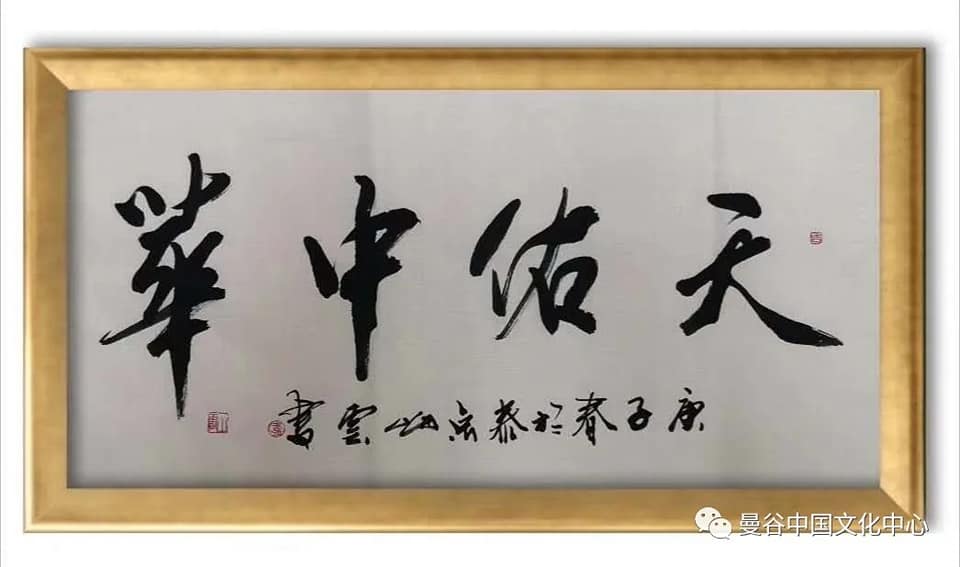 天佑中華
庚子春於泰京雲書
曼谷中国文化中心